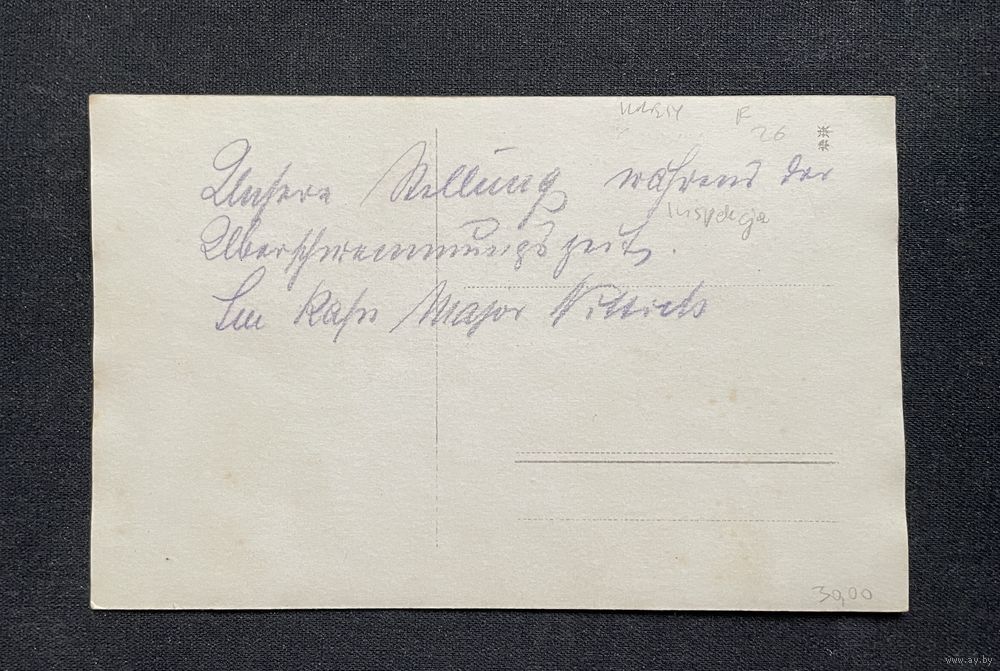 F
26
Unsere Stellung während der
Inspekcja
Überschwemmungszeit.
Im Kahn Major Wittich
30,00
www.ay.by